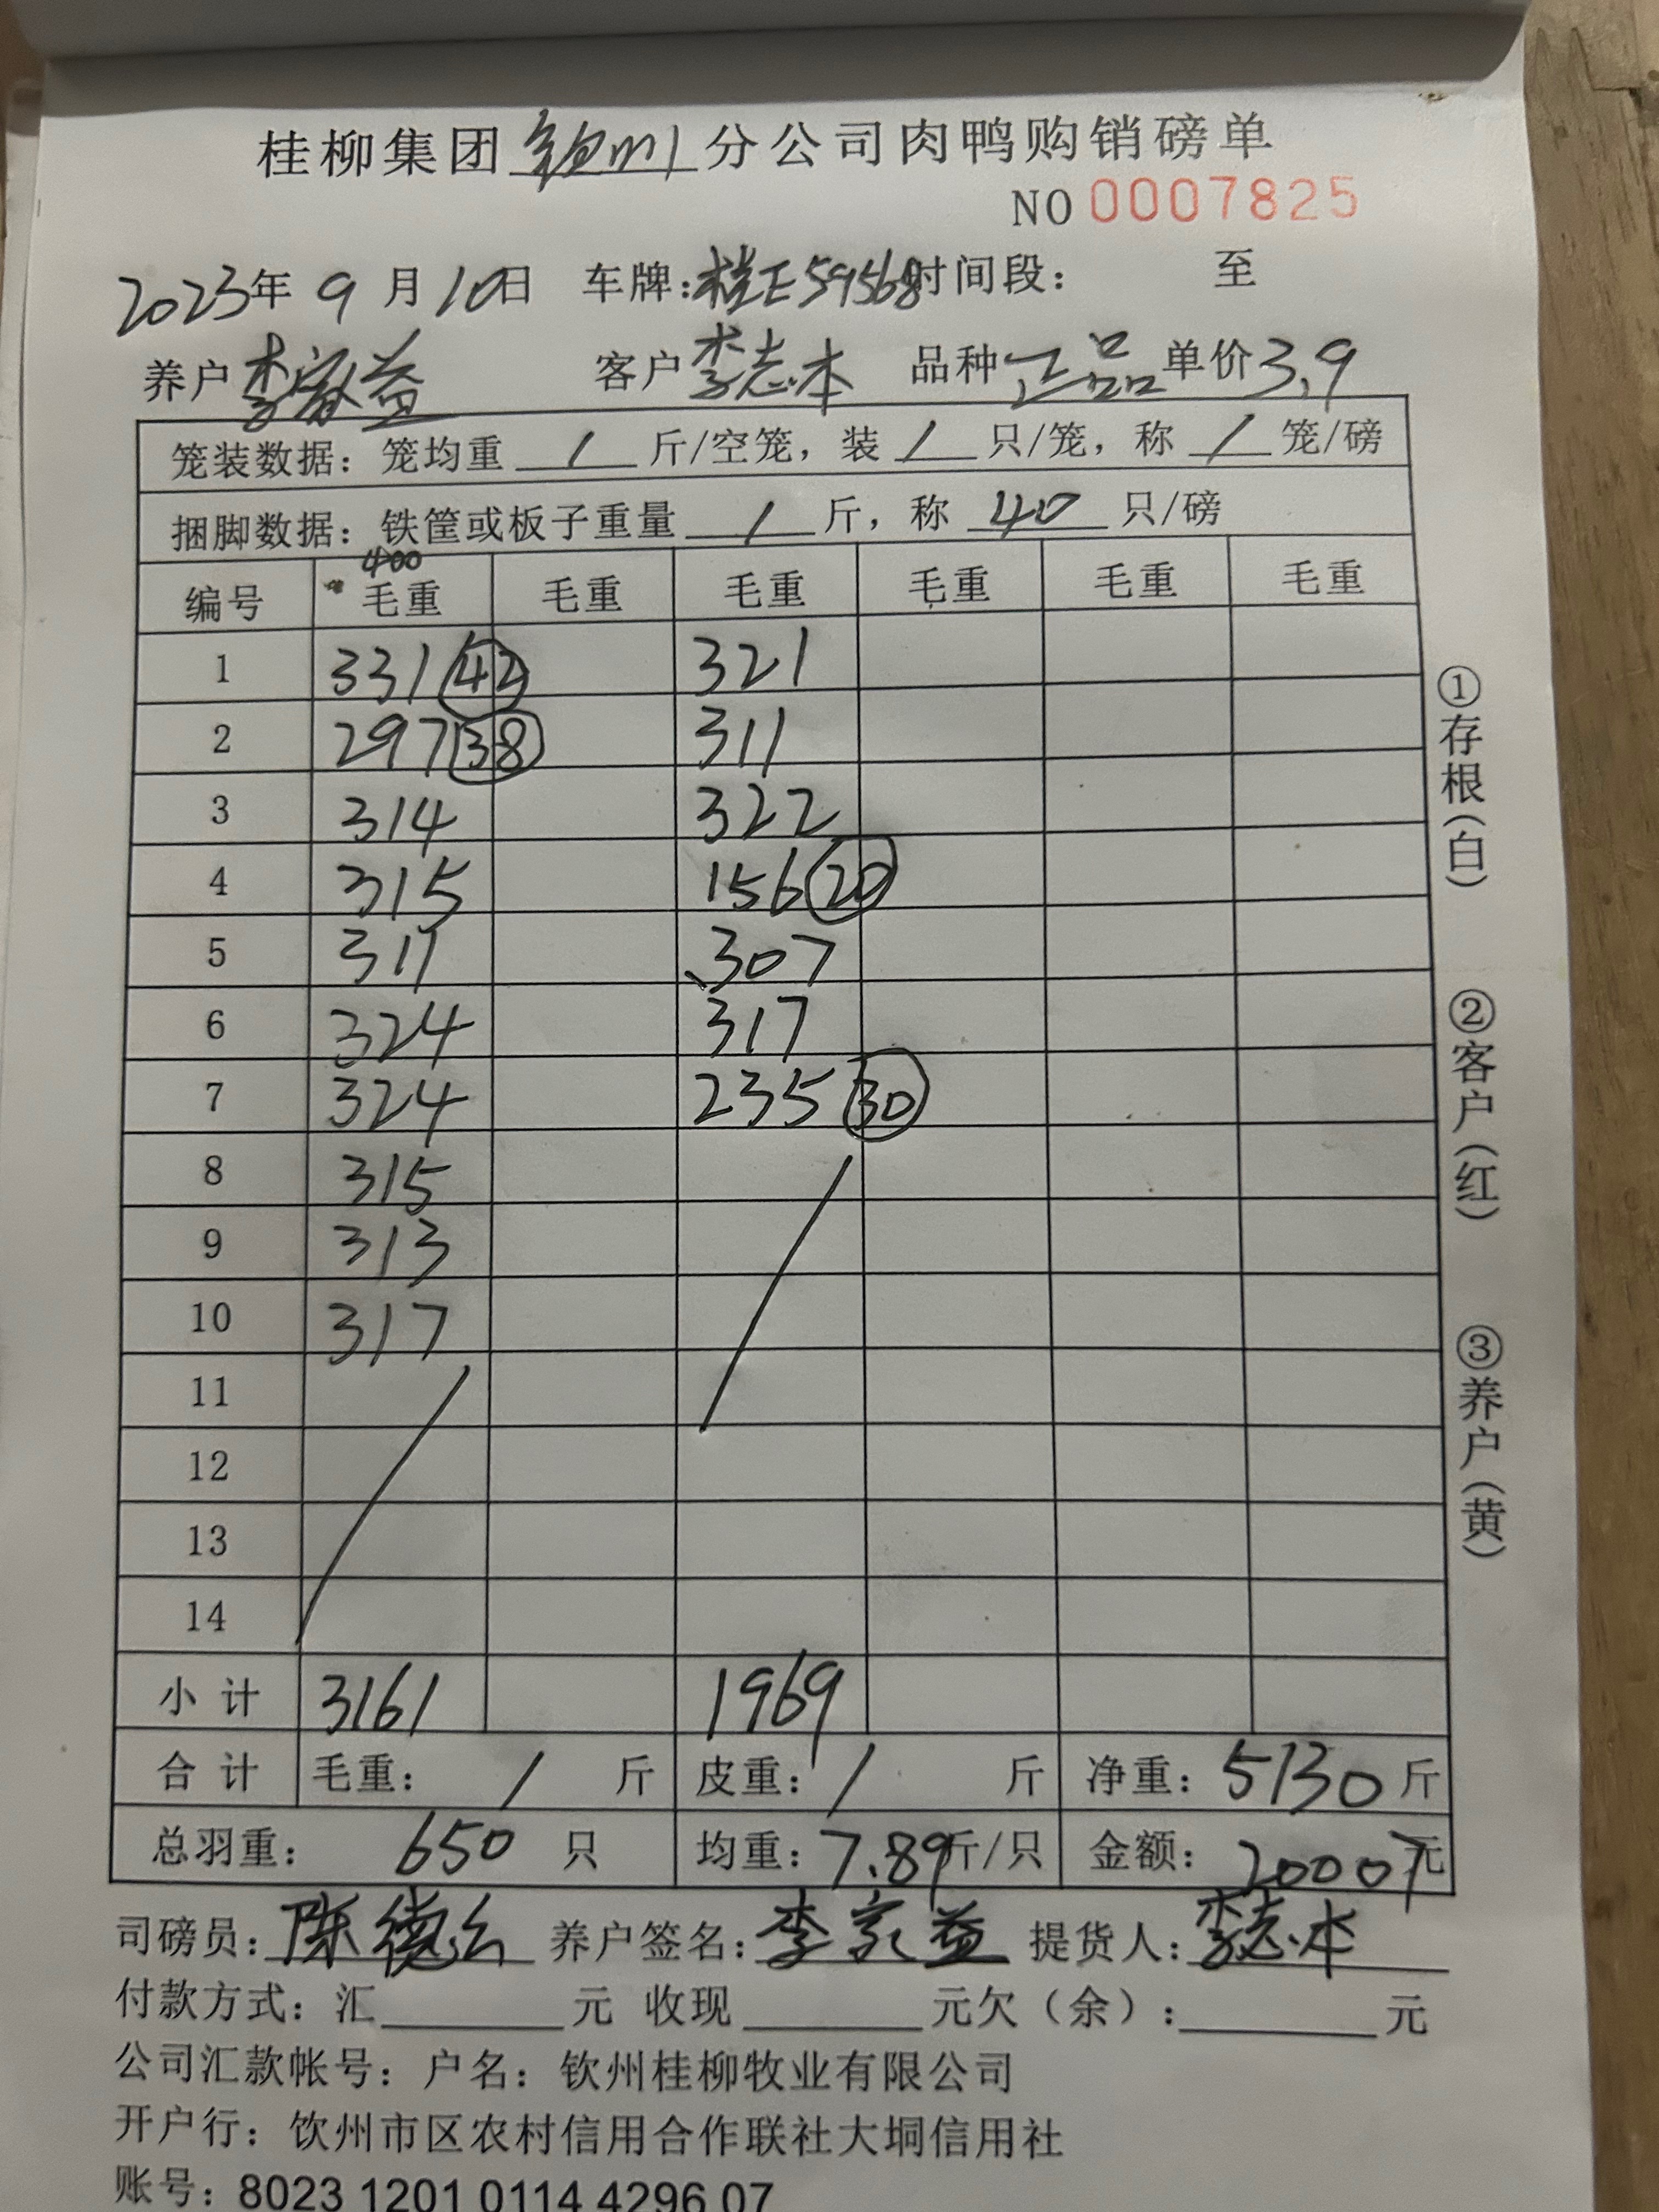 桂柳集团钦州分公司肉鸭购销磅单
NO 0007825
2023年 9 月 10日 车牌:桂E59568时间段： 至
养户 李家益 客户 李志本 品种 正品 单价 3.9
笼装数据：笼均重 / 斤/空笼，装 / 只/笼，称 / 笼/磅
捆脚数据：铁筐或板子重量 / 斤，称 40 只/磅
400
编号 毛重 毛重 毛重 毛重 毛重 毛重
1 331 42 321
2 297 38 311
3 314 322
4 315 156 20
5 311 307
6 324 317
7 324 235 30
8 315
9 313
10 317
11
12
13
14
小计 3161 1969
合计 毛重： / 斤 皮重： / 斤 净重：5130 斤
总羽重： 650 只 均重：7.89斤/只 金额：20007元
司磅员：陈德 养户签名：李家益 提货人：李志本
付款方式：汇 元 收现 元欠（余）： 元
公司汇款帐号：户名：钦州桂柳牧业有限公司
开户行：钦州市区农村信用合作联社大垌信用社
账号：8023 1201 0114 4296 07
①存根（白）
②客户（红）
③养户（黄）